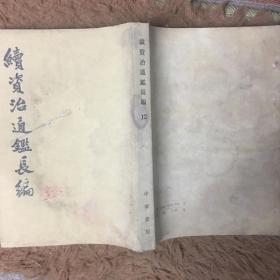 續資治通鑑長編
續資治通鑑長編
12
中華書局